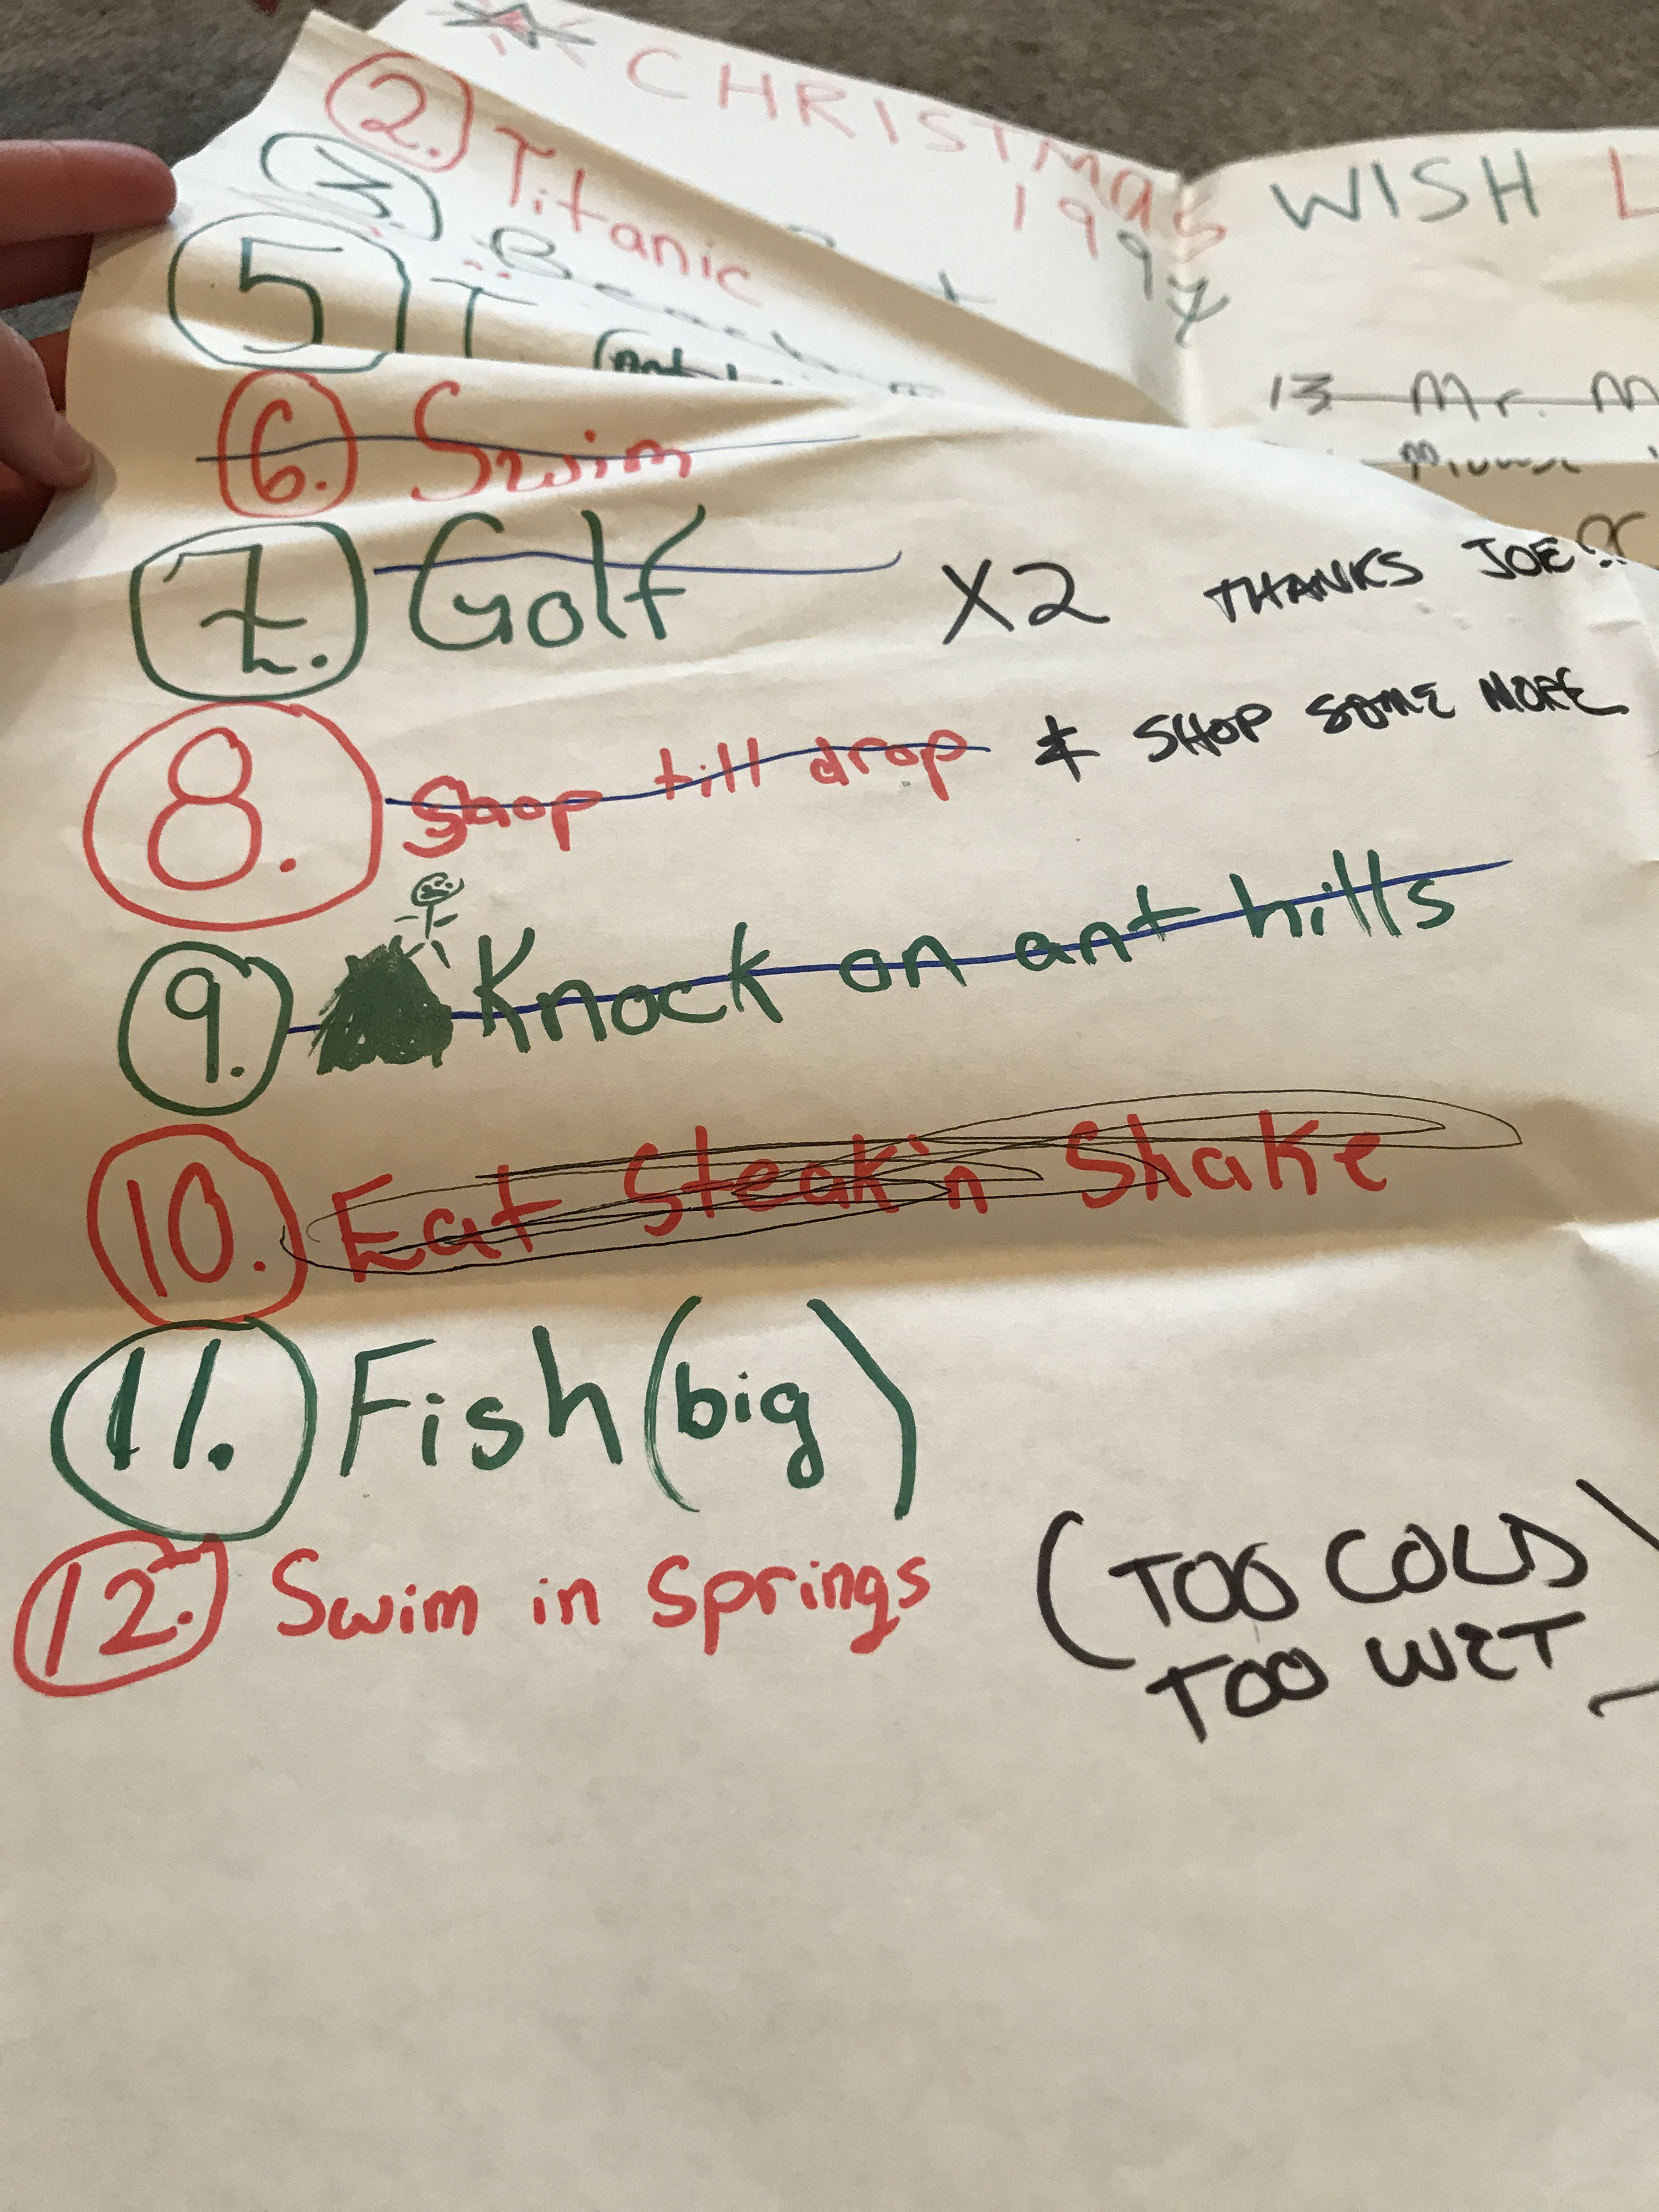 CHRISTMAS WISH
1997
2. Titanic
3.
5
6. Swim
13 Mr.
7. Golf X2 THANKS JOE!
8. Shop till drop & SHOP SOME MORE
9. Knock on ant hills
10. Eat Steak'n Shake
11. Fish (big)
12. Swim in Springs (TOO COLD
TOO WET)